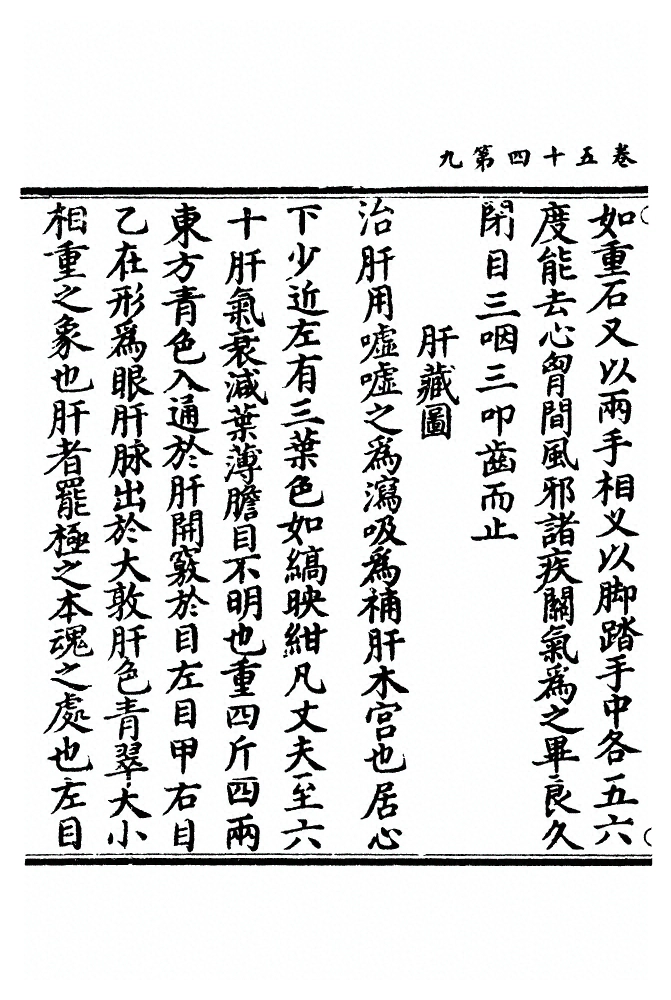 卷五十四第九
如重石又以兩手相义以脚踏手中各五六
度能去心胷間風邪諸疾關氣爲之畢良久
閉目三咽三叩齒而止
肝藏圖
治肝用噓噓之爲瀉吸爲補肝木宫也居心
下少近左有三葉色如縞映紺凡丈夫至六
十肝氣衰減葉薄膽目不明也重四斤四兩
東方青色入通於肝開竅於目左目甲右目
乙在形爲眼肝脉出於大敦肝色青翠大小
相重之象也肝者罷極之本魂之處也左目